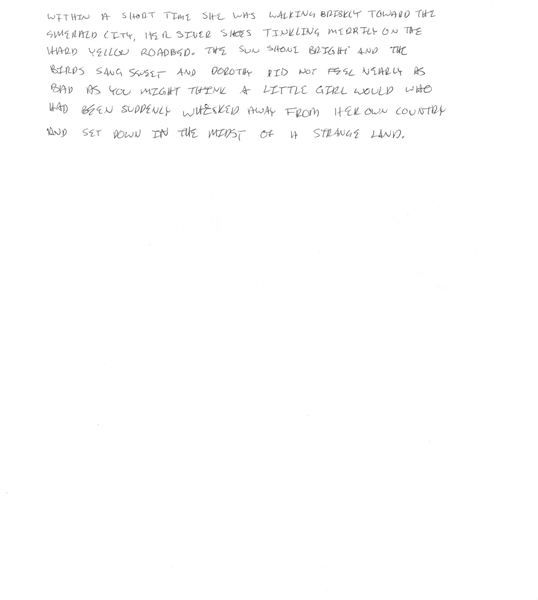 WITHIN A SHORT TIME SHE WAS WALKING BRISKLY TOWARD THE
EMERALD CITY, HER SILVER SHOES TINKLING MERRILY ON THE
HARD YELLOW ROADBED. THE SUN SHONE BRIGHT AND THE
BIRDS SANG SWEET AND DOROTHY DID NOT FEEL NEARLY AS
BAD AS YOU MIGHT THINK A LITTLE GIRL WOULD WHO
HAD BEEN SUDDENLY WHISKED AWAY FROM HER OWN COUNTRY
AND SET DOWN IN THE MIDST OF A STRANGE LAND.